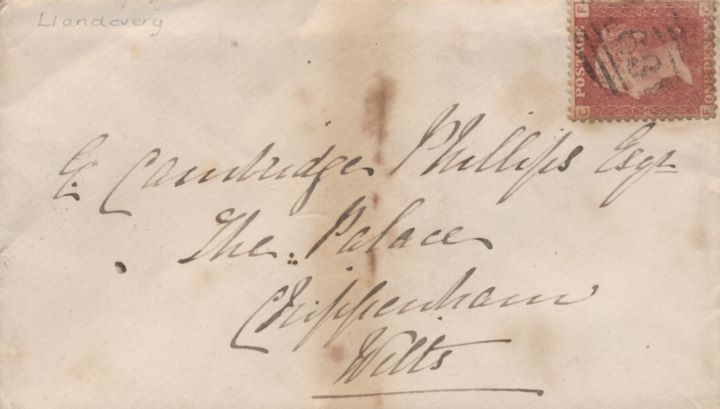 Llandovery
POSTAGE
E. Cambridge Phillips Esqr
The Palace
Chippenham
Wilts